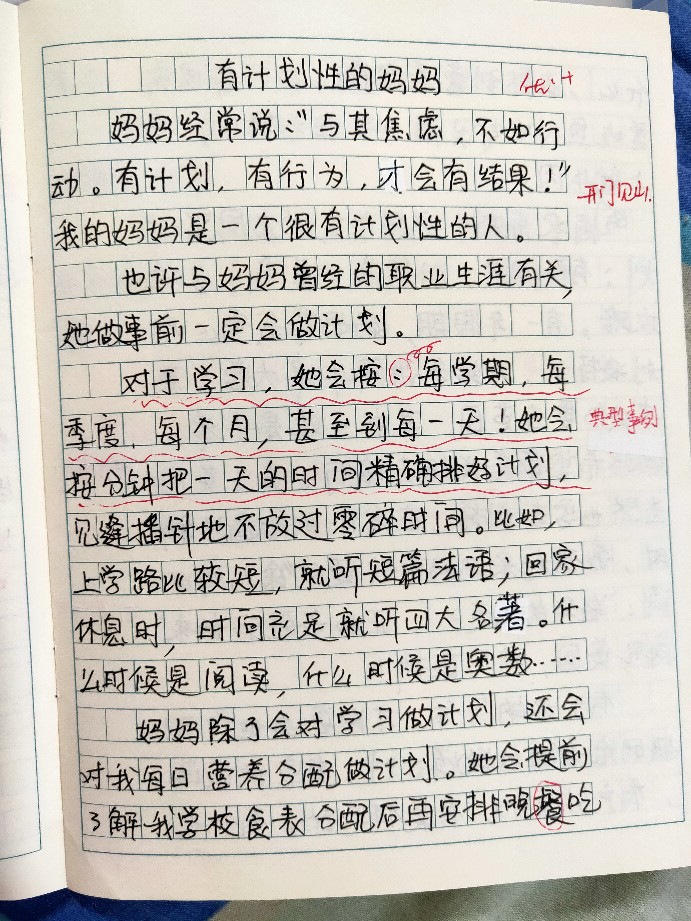 有计划性的妈妈
妈妈经常说：“与其焦虑，不如行
动。有计划，有行为，才会有结果！”
开门见山.
我的妈妈是一个很有计划性的人。
也许与妈妈曾经的职业生涯有关，
她做事前一定会做计划。
对于学习，她会按：每学期，每
季度，每个月，甚至到每一天！她会
典型事例
按分钟把一天的时间精确排好计划，
见缝播针地不放过零碎时间。比如，
上学路比较短，就听短篇法语，回家
休息时，时间充足就听四大名著。什
么时候是阅读，什么时候是奥数……
妈妈除了会对学习做计划，还会
对我每日营养分配做计划。她会提前
了解我学校食表分配后再安排晚餐吃